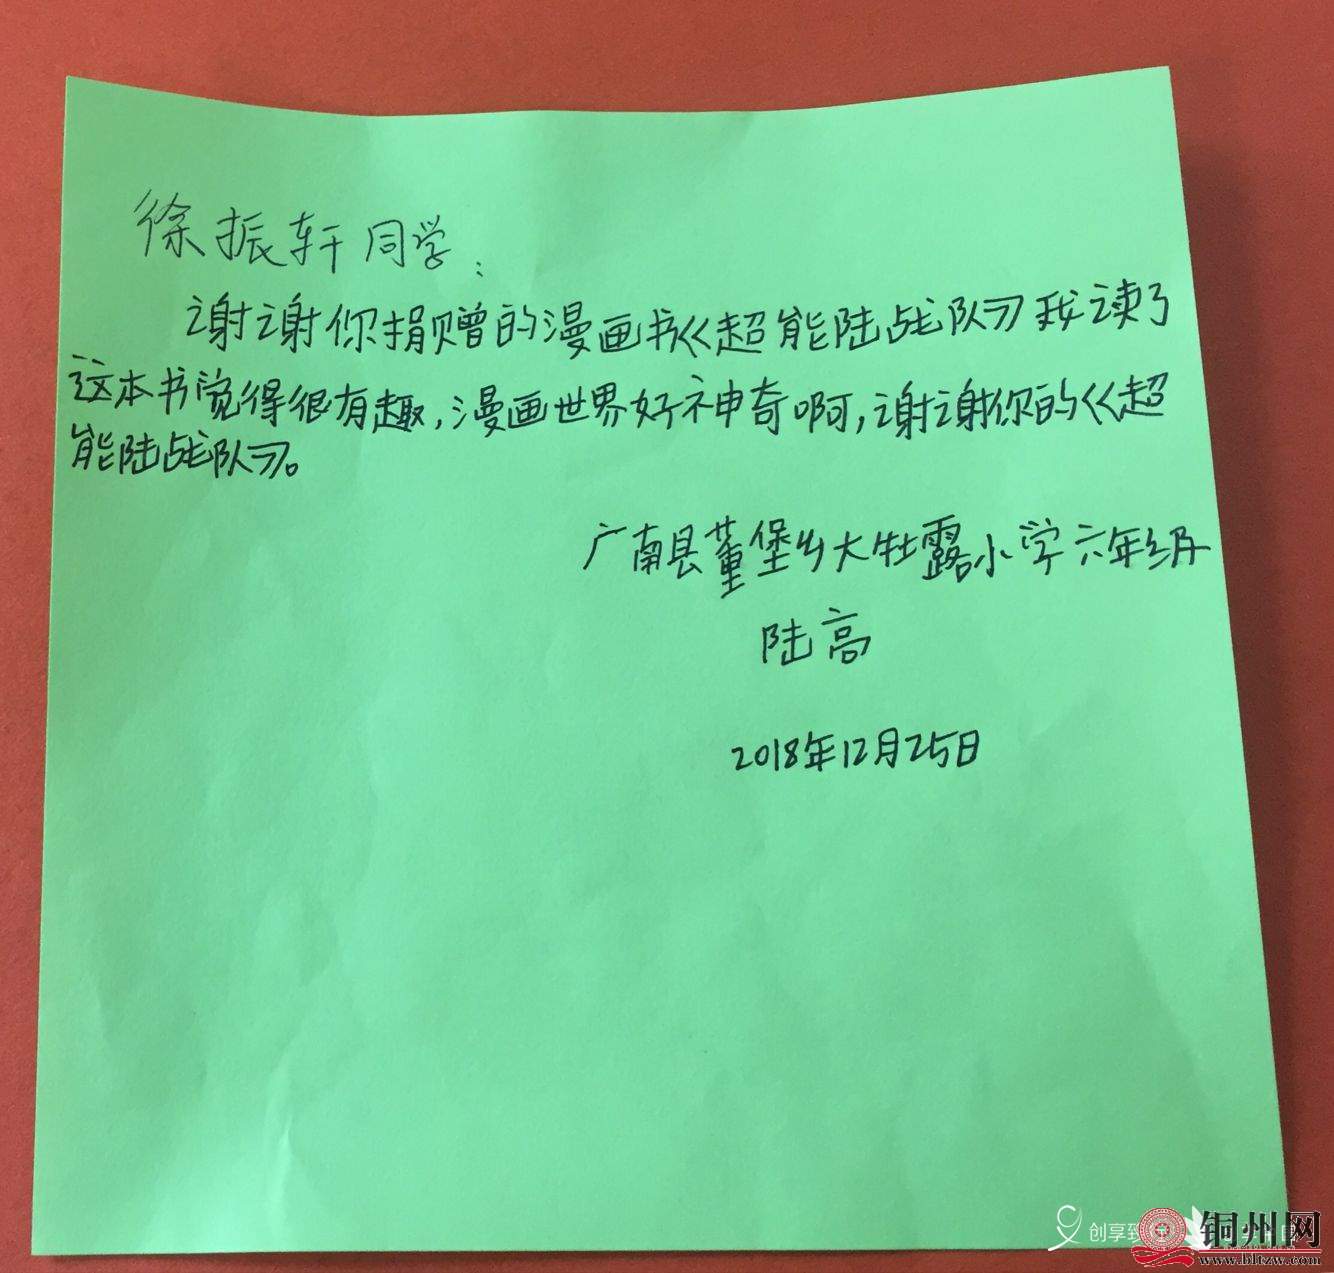 徐振轩同学:
谢谢你捐赠的漫画书《超能陆战队》我读了
这本书觉得很有趣,漫画世界好神奇啊,谢谢你的《超
能陆战队》。
广南县董堡乡大牡露小学六年级
陆高
2018年12月25日
创享致
铜州网
www.bltzw.com